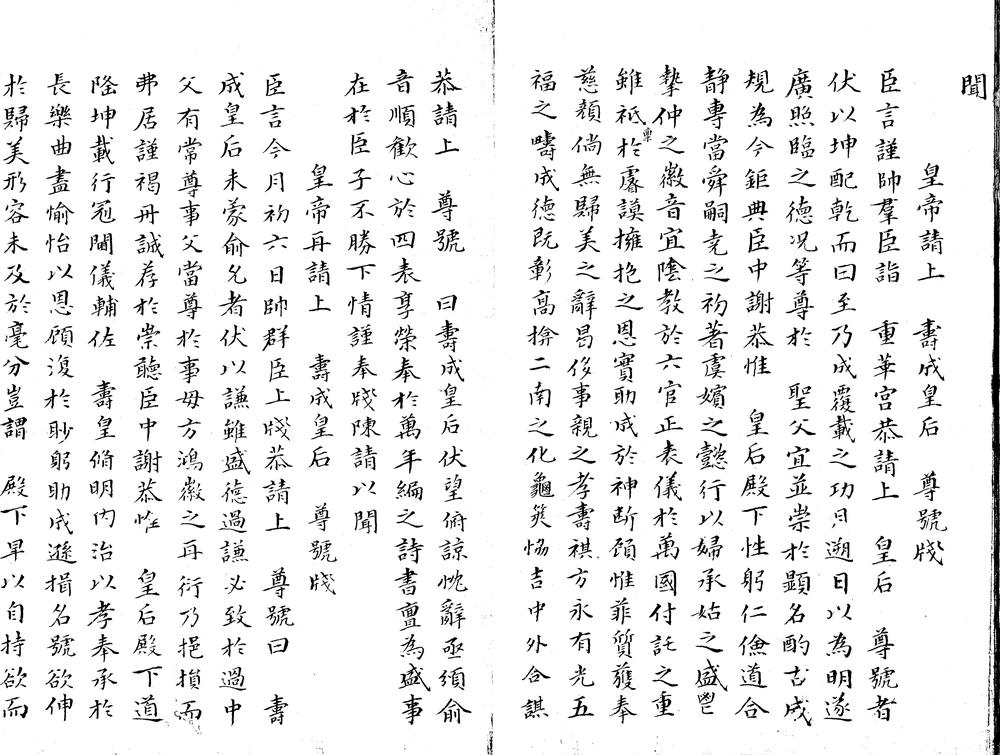 聞
皇帝請上　壽成皇后　尊號牋
臣言謹帥羣臣詣　重華宮恭請上　皇后　尊號者
伏以坤配乾而曰至乃成覆載之功月遡日以為明遂
廣照臨之德况等尊於　聖父宜並崇於顯名酌古成
規為今鉅典臣中謝恭惟　皇后殿下性躬仁儉道合
靜專當舜嗣堯之初著虞嬪之懿行以婦承姑之盛鬯
摯仲之徽音宜陰教於六官正表儀於萬國付託之重
雖祗稟於睿謨擁抱之恩實助成於神斷顧惟菲質獲奉
慈顏倘無歸美之辭曷侈事親之孝壽祺方永有光五
福之疇成德既彰高掩二南之化龜筮恊吉中外合謀
恭請上　尊號　曰壽成皇后伏望俯諒忱辭亟須俞
音順歡心於四表享榮奉於萬年編之詩書亶為盛事
在於臣子不勝下情謹奉牋陳請以聞
皇帝再請上　壽成皇后　尊號牋
臣言今月初六日帥群臣上牋恭請上　尊號曰　壽
成皇后未蒙俞允者伏以謙雖盛德過謙必致於過中
父有常尊事父當尊於事母方鴻徽之再衍乃挹損而
弗居謹裼丹誠荐於崇聽臣中謝恭惟　皇后殿下道
隆坤載行冠閫儀輔佐　壽皇脩明內治以孝奉承於
長樂曲盡愉怡以恩顧復於眇躬助成遜揖名號欲伸
於歸美形容未及於毫分豈謂　殿下早以自持欲而